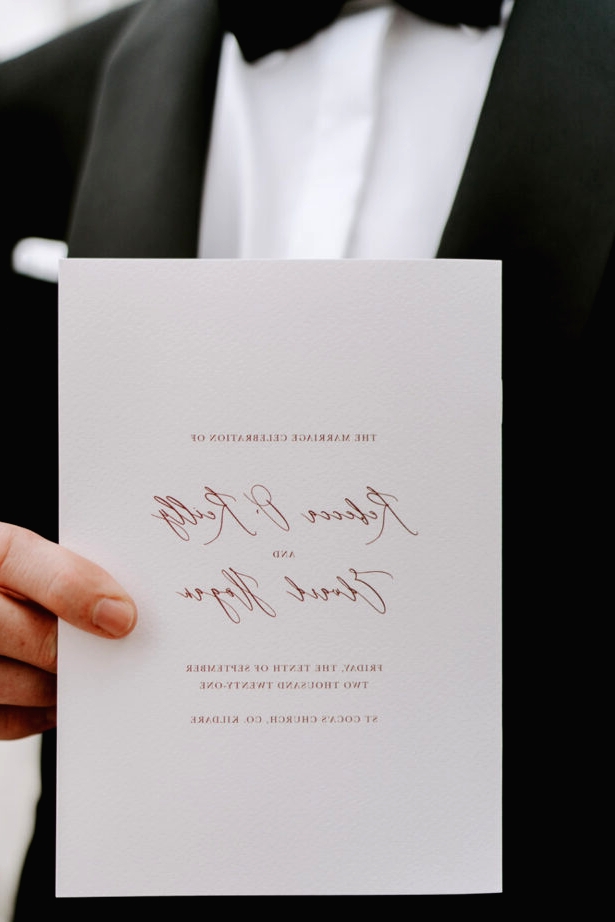 THE MARRIAGE CELEBRATION OF
Rebecca O'Reilly
AND
Edward Hogan
FRIDAY, THE TENTH OF SEPTEMBER
TWO THOUSAND TWENTY-ONE
ST COCA'S CHURCH, CO. KILDARE